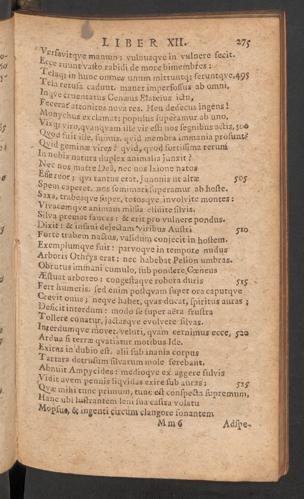 LIBER XII. 275
Versavitque manum: vulnusque in vulnere fecit.
Ecce ruunt vasto rabidi de more bimembres:
Telaq; in hunc omnes unum mittuntq; feruntque. 495
Tela retusa cadunt: manet imperfossus ab omni,
Inque cruentatus Cæneus Elateius ictu,
Fecerat attonitos nova res. Heu dedecus ingens!
Monychus exclamat: populus superamur ab uno,
Vixq; viro, quamquam ille vir est: nos segnibus actis, 500
Quod fuit ille, sumus. quid membra immania prosunt?
Quid geminæ vires? quid, quod fortissima rerum
In nobis natura duplex animalia junxit?
Nec nos matre Dea, nec nos Ixione natos
Esse reor: qui tantus erat, Junonis ut altæ 505
Spem caperet. nos semimari superamur ab hoste.
Saxa, trabesque super, totosque involvite montes:
Vivacemque animam missa elidite silva.
Silva premat fauces: & erit pro vulnere pondus.
Dixit: & insani dejectam viribus Austri 510
Forte trabem nactus, validum conjecit in hostem.
Exemplumque fuit: parvoque in tempore nudus
Arboris Othrys erat: nec habebat Pelion umbras.
Obrutus immani cumulo, sub pondere Cæneus
Æstuat arboreo: congestaque robora duris 515
Fert humeris. sed enim postquam super ora caputque
Crevit onus; neque habet, quas ducat, spiritus auras;
Deficit interdum: modo se super aëra frustra
Tollere conatur, jactasque evolvere silvas.
Interdumque movet. veluti, quam cernimus ecce, 520
Ardua si terræ quatiatur motibus Ide.
Exitus in dubio est. alii sub inania corpus
Tartara detrusum silvarum mole ferebant.
Abnuit Ampycides: medioque ex aggere fulvis
Vidit avem pennis liquidas exire sub auras: 525
Quæ mihi tunc primum, tunc est conspecta supremum,
Hanc ubi lustrantem leni sua castra volatu
Mopsus, & ingenti circum clangore sonantem
Mm 6 Adspe-